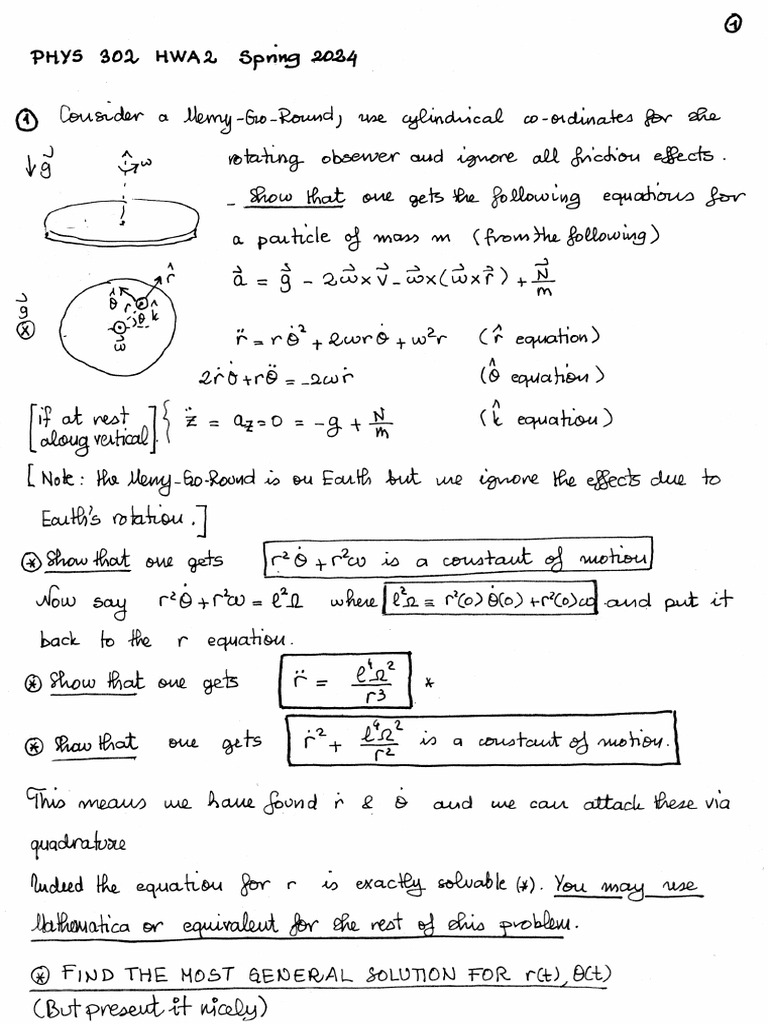 ①
PHYS 302 HWA2 Spring 2034
① Consider a Merry-Go-Round, use cylindrical co-ordinates for the
↓g⃗ ω̂ rotating observer and ignore all friction effects.
- Show that one gets the following equations for
a particle of mass m (from the following)
r̂ θ̂ r θ k̂ ω⃗ a⃗ = g⃗ - 2ω⃗×v⃗ - ω⃗×(ω⃗×r⃗) + N⃗/m
g⃗ ⊗ r̈ = rθ̇² + 2ωrθ̇ + ω²r (r̂ equation)
2ṙθ̇ + rθ̈ = -2ωṙ (θ̂ equation)
[if at rest along vertical] { z̈ = a_z = 0 = -g + N/m (k̂ equation)
[Note: the Merry-Go-Round is on Earth but we ignore the effects due to
Earth's rotation.]
⊛ Show that one gets r²θ̇ + r²ω is a constant of motion
Now say r²θ̇ + r²ω = ℓ²Ω where ℓ²Ω ≡ r²(0)θ̇(0) + r²(0)ω and put it
back to the r equation.
⊛ Show that one gets r̈ = ℓ⁴Ω²/r³ *
⊛ Show that one gets ṙ² + ℓ⁴Ω²/r² is a constant of motion.
This means we have found ṙ & θ̇ and we can attack these via
quadrature
Indeed the equation for r is exactly solvable (*). You may use
Mathematica or equivalent for the rest of this problem.
⊛ FIND THE MOST GENERAL SOLUTION FOR r(t), θ(t)
(But present it nicely)